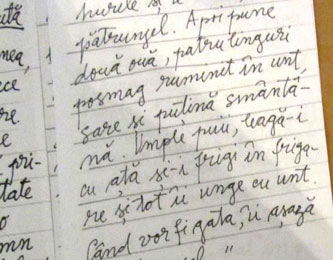 ută
hurele și u
pătrunjel. Apoi pune
nea,
două ouă, patru linguri
ce
posmag ruminit în unt,
re.
sare și puțină smântâ-
e
nă. Umple puii, leagă-i
pri-
cu ață și-i frigi în friga-
tate
re și tot îi unge cu unt.
o
Când vor fi gata, îi așază
mn